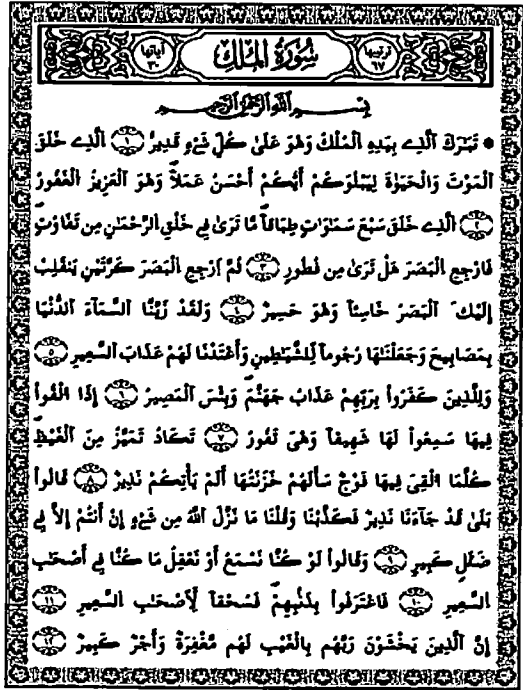 ترتيبها ٦٧ سُورَةُ الْمُلْكِ آياتها ٣٠
بِسْمِ اللَّهِ الرَّحْمَٰنِ الرَّحِيمِ
* تَبَٰرَكَ اَلَّذِے بِيَدِهِ اِلْمُلْكُ وَهُوَ عَلَىٰ كُلِّ شَےْءٍ قَدِيرٌ ١ اَلَّذِے خَلَقَ
اَلْمَوْتَ وَالْحَيَوٰةَ لِيَبْلُوَكُمْ أَيُّكُمْ أَحْسَنُ عَمَلاً وَهُوَ اَلْعَزِيزُ اَلْغَفُورُ
٢ اَلَّذِے خَلَقَ سَبْعَ سَمَٰوَاتٍ طِبَاقاً مَّا تَرَىٰ فِے خَلْقِ اِلرَّحْمَٰنِ مِن تَفَٰوُتٍ
فَارْجِعِ اِلْبَصَرَ هَلْ تَرَىٰ مِن فُطُورٍ ٣ ثُمَّ اَرْجِعِ اِلْبَصَرَ كَرَّتَيْنِ يَنقَلِبْ
إِلَيْكَ اَلْبَصَرُ خَاسِئاً وَهُوَ حَسِيرٌ ٤ وَلَقَدْ زَيَّنَّا اَلسَّمَآءَ اَلدُّنْيَا
بِمَصَابِيحَ وَجَعَلْنَٰهَا رُجُوماً لِّلشَّيَٰطِينِ وَأَعْتَدْنَا لَهُمْ عَذَابَ اَلسَّعِيرِ ٥
وَلِلَّذِينَ كَفَرُواْ بِرَبِّهِمْ عَذَابُ جَهَنَّمَ وَبِئْسَ اَلْمَصِيرُ ٦ إِذَا أُلْقُواْ
فِيهَا سَمِعُواْ لَهَا شَهِيقاً وَهْيَ تَفُورُ ٧ تَكَادُ تَمَيَّزُ مِنَ اَلْغَيْظِ
كُلَّمَا أُلْقِيَ فِيهَا فَوْجٌ سَأَلَهُمْ خَزَنَتُهَا أَلَمْ يَأْتِكُمْ نَذِيرٌ ٨ قَالُواْ
بَلَىٰ قَدْ جَآءَنَا نَذِيرٌ فَكَذَّبْنَا وَقُلْنَا مَا نَزَّلَ اَللَّهُ مِن شَےْءٍ إِنْ أَنتُمْ إِلاَّ فِے
ضَلَٰلٍ كَبِيرٍ ٩ وَقَالُواْ لَوْ كُنَّا نَسْمَعُ أَوْ نَعْقِلُ مَا كُنَّا فِے أَصْحَٰبِ
اِلسَّعِيرِ ١٠ فَاعْتَرَفُواْ بِذَنبِهِمْ فَسُحْقاً لِّأَصْحَٰبِ اِلسَّعِيرِ ١١
إِنَّ اَلَّذِينَ يَخْشَوْنَ رَبَّهُم بِالْغَيْبِ لَهُم مَّغْفِرَةٌ وَأَجْرٌ كَبِيرٌ ١٢